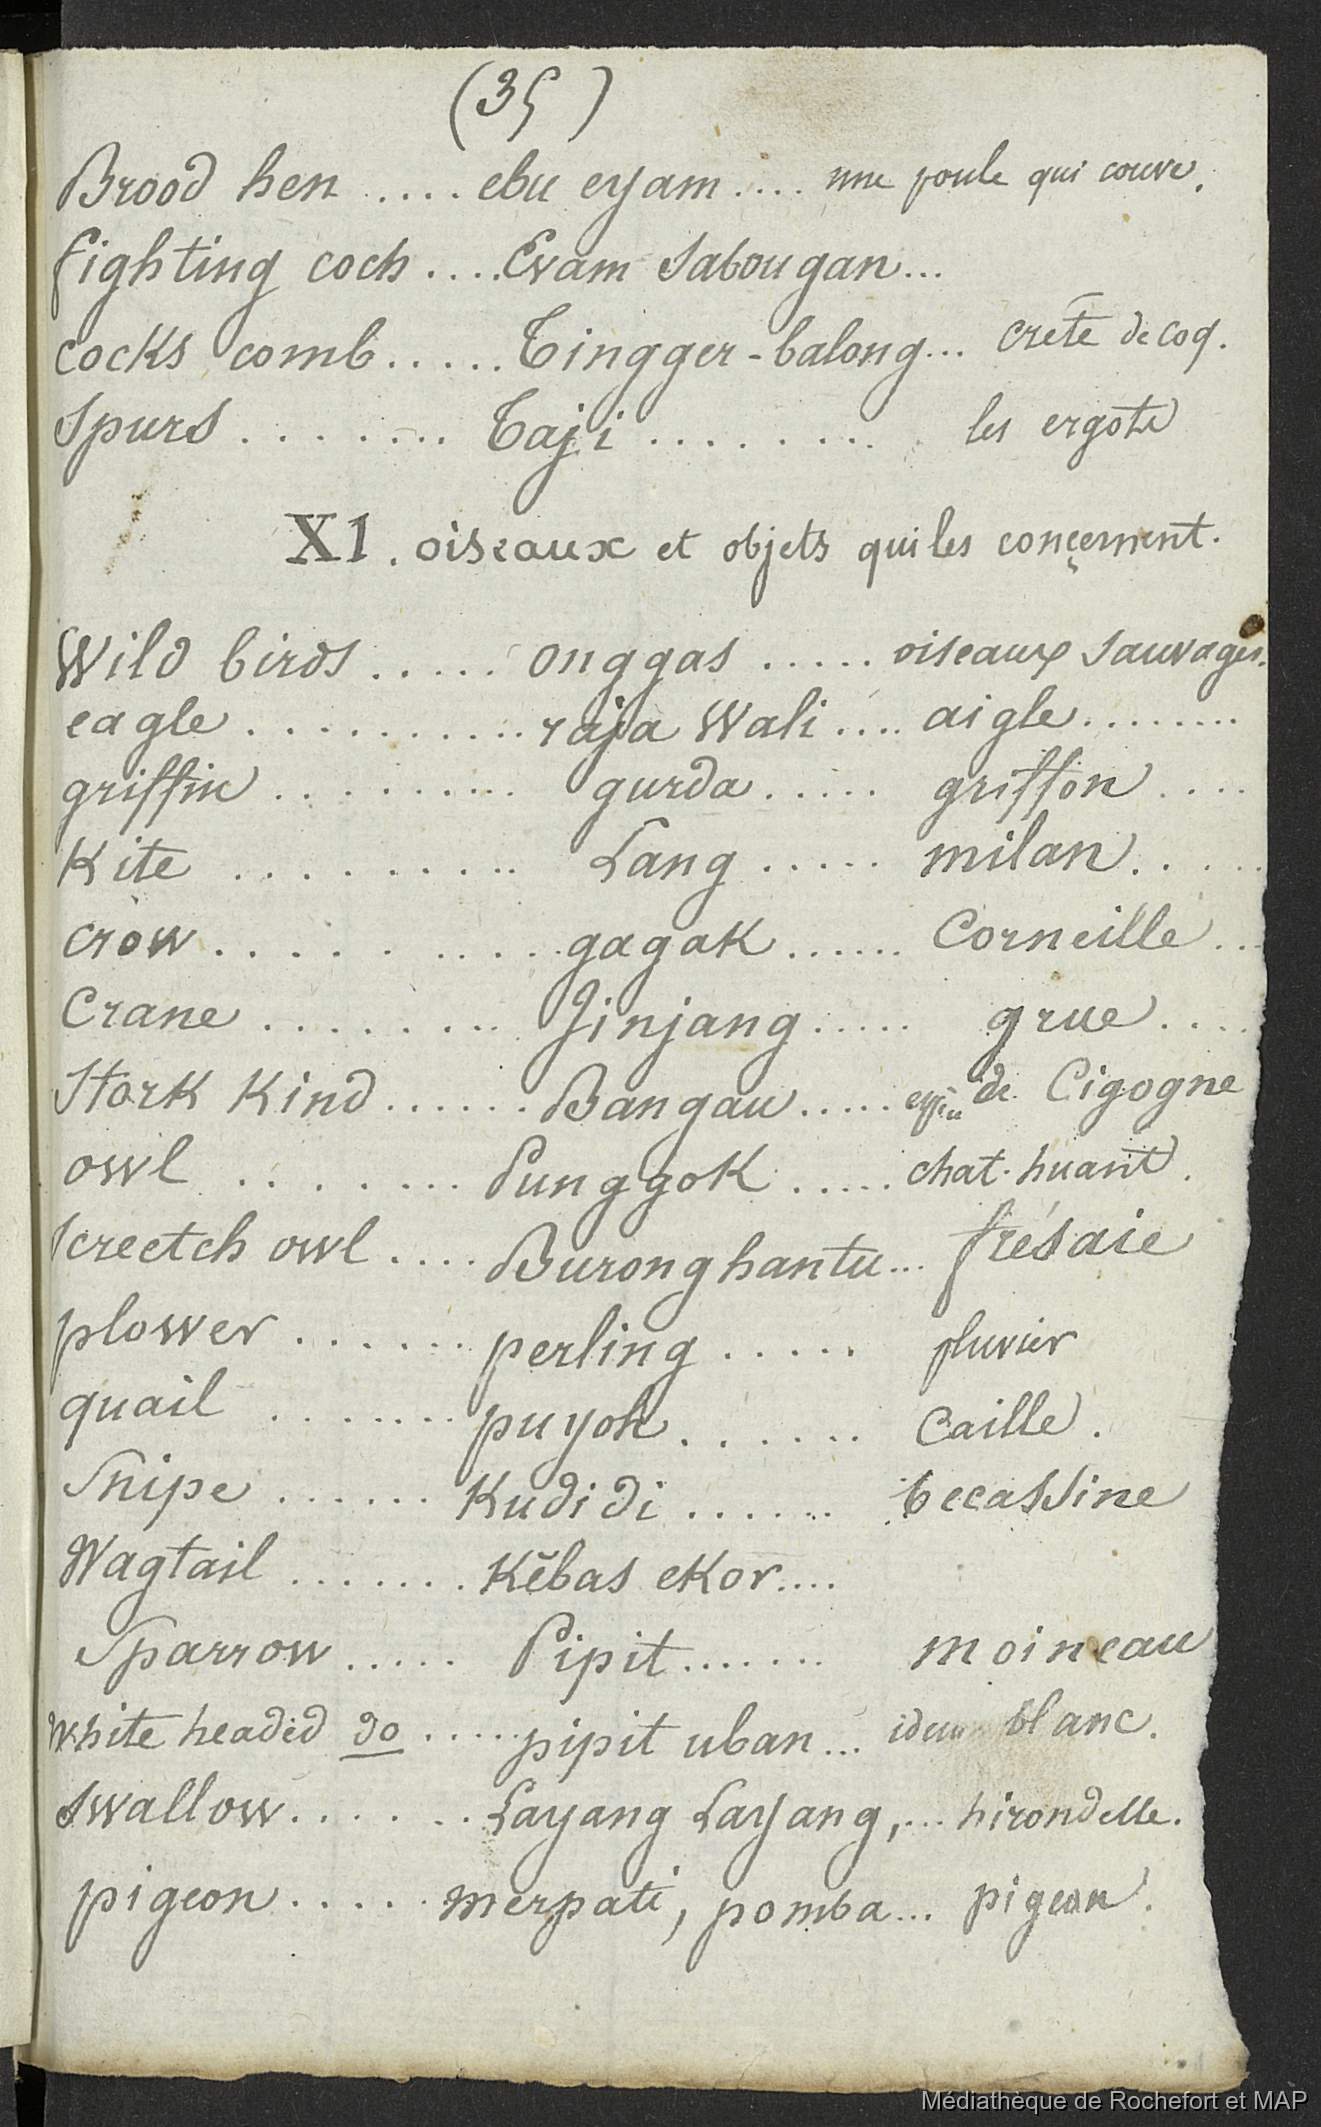 (35)
Brood hen .... ebu eyam .... une poule qui couve.
fighting coch .... Evam Sabougan ...
cocks comb ..... Tingger-balong ... crête de coq.
Spurs ........ Taji ......... les ergots
XI. oiseaux et objets qui les conçernent.
Wild birds ..... onggas ..... oiseaux Sauvages.
eagle .......... raja Wali .... aigle ........
griffin .......... gurda ..... griffon ....
Kite .......... Lang ..... milan .....
crow .......... gagak ...... Corneille ...
Crane ........ Jinjang ..... grue ....
Stork Kind ...... Bangau ..... de Cigogne
owl ........ Punggok ..... chat-huant.
Screetch owl .... Burong hantu ... frésaie
plower ....... perling ..... pluvier
quail ....... puyoh ...... Caille.
Snipe ...... Kudidi ...... beccassine
Wagtail ....... Kĕbas ekor ....
Sparrow ..... Pipit ....... moineau
White headed do ..... pipit uban ... idem blanc.
Swallow ...... Layang Layang, ... hirondelle.
pigeon ..... merpati, pomba ... pigeon.
Médiathèque de Rochefort et MAP